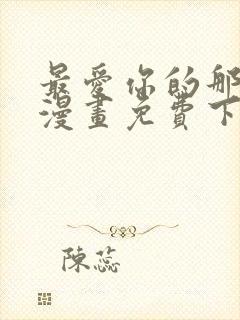 最愛你的那
漫畫免費下
陳蕊